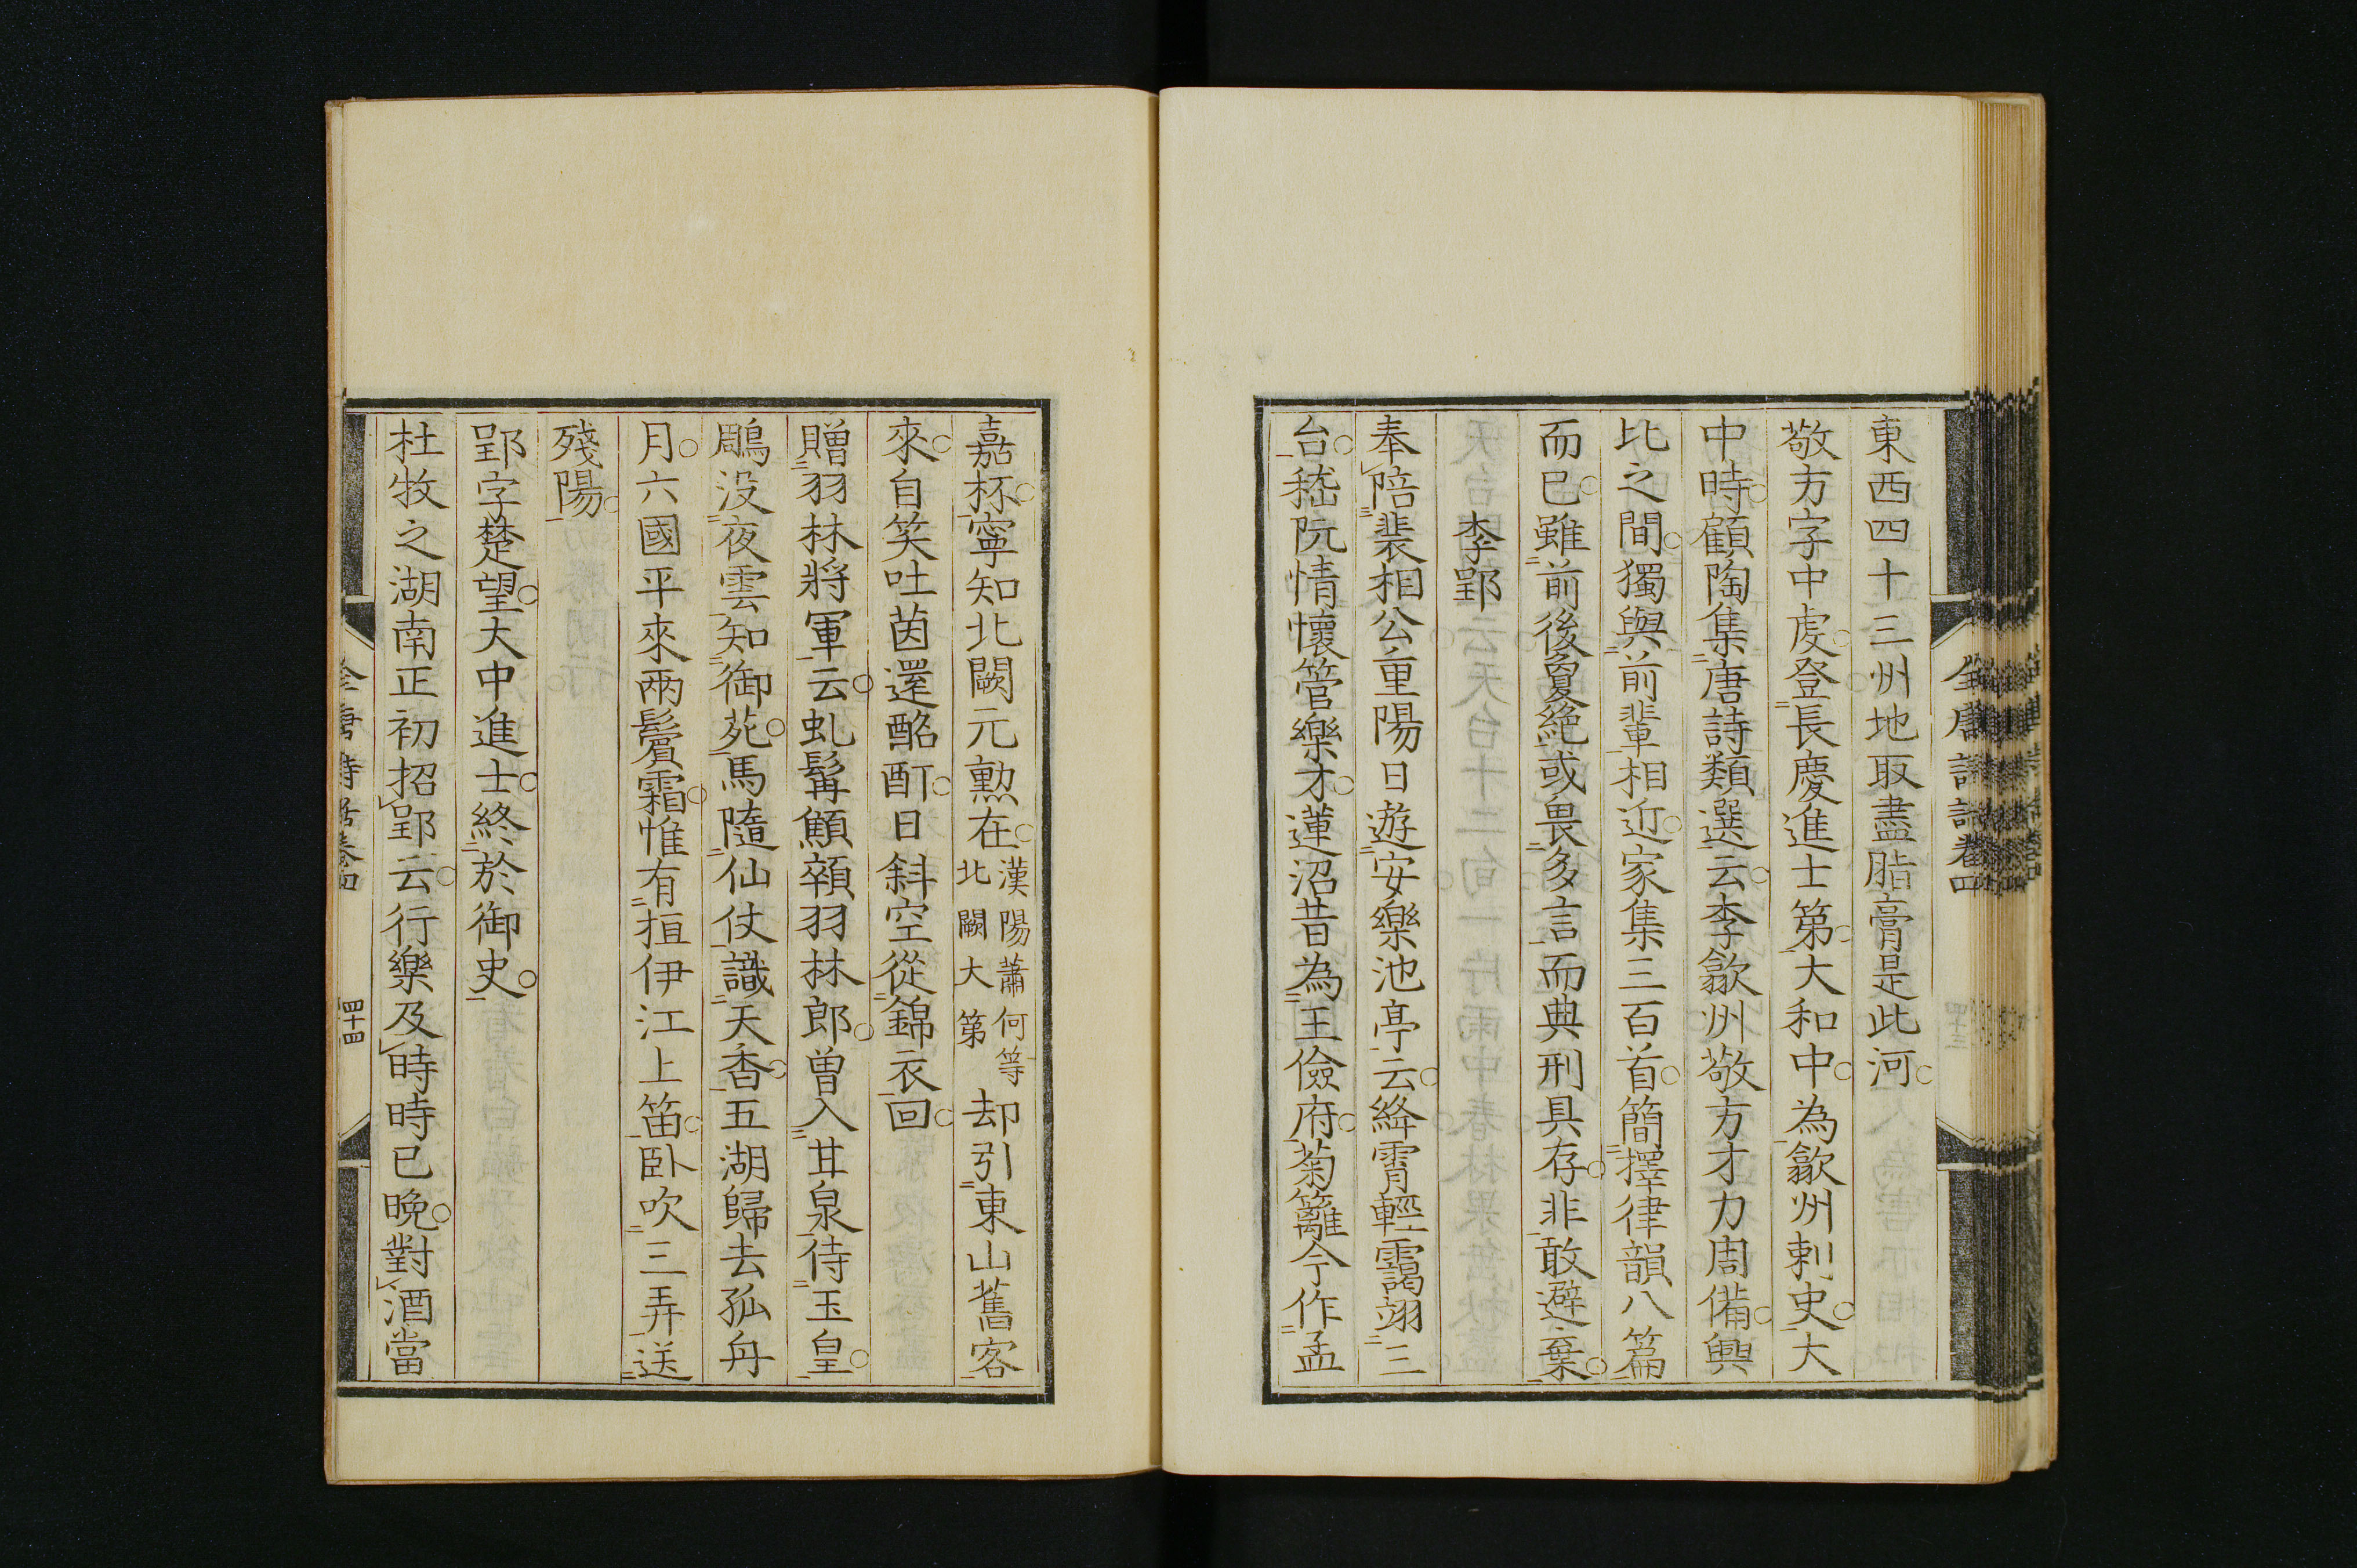 東西四十三州地取盡脂膏是此河
敬方字中虔登長慶進士第大和中為歙州刺史大
中時顧陶集唐詩類選云李歙州敬方才力周備興
比之間獨與前輩相近家集三百首簡擇律韻八篇
而已雖前後夐絕或畏多言而典刑具存非敢避棄
李郢
奉陪裴相公重陽日遊安樂池亭云絳霄輕靄翊三
台嵇阮情懷管樂才蓮沼昔為王儉府菊籬今作孟
全唐詩話卷四
四十三
嘉杯寧知北闕元勲在
漢陽蕭何等
北闕大第
却引東山舊客
來自笑吐茵還酩酊日斜空從錦衣回
贈羽林將軍云虬髯顦顇羽林郎曽入甘泉侍玉皇
鵰没夜雲知御苑馬隨仙仗識天香五湖歸去孤舟
月六國平來兩鬢霜惟有桓伊江上笛卧吹三弄送
殘陽
郢字楚望大中進士終於御史
杜牧之湖南正初招郢云行樂及時時已晚對酒當
全唐詩話卷四
四十四